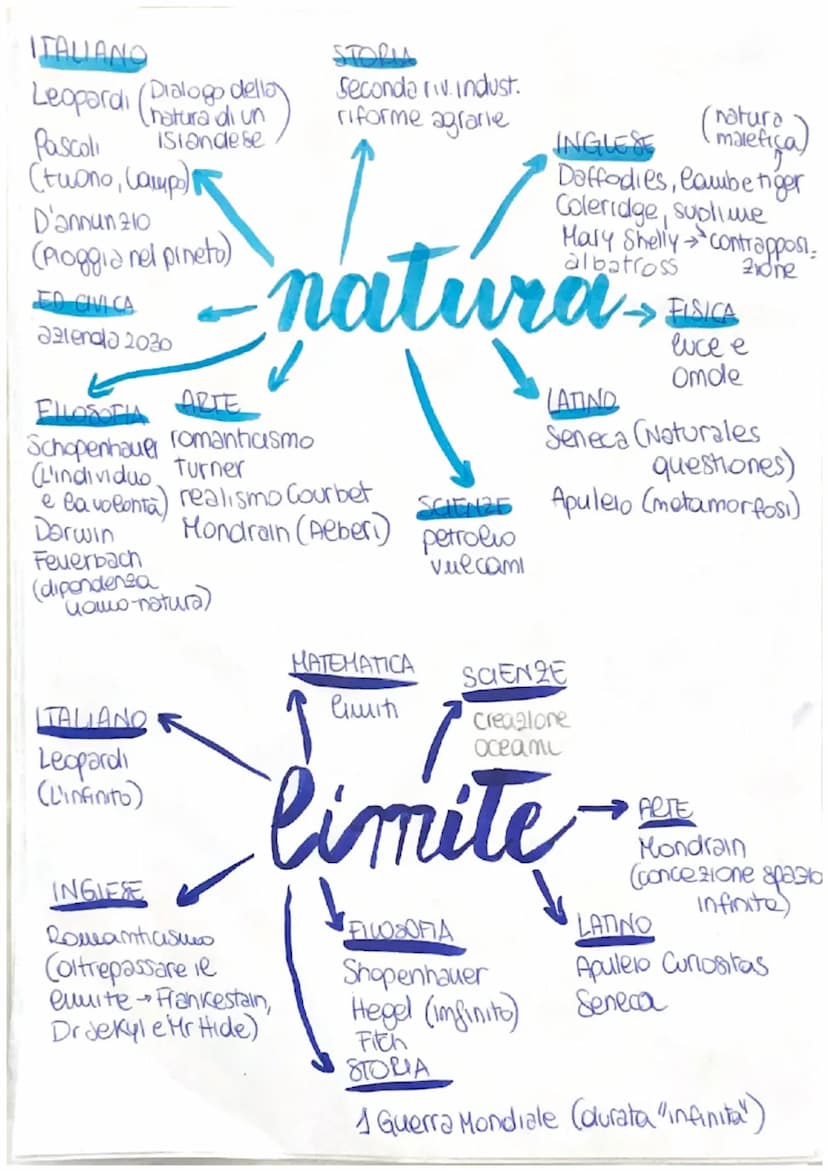 ITALIANO
Leopardi (Dialogo della
natura di un
islandese)
Pascoli
(tuono, lampo)
D'annunzio
(Pioggia nel pineto)
STORIA
Seconda riv. indust.
riforme agrarie
INGLESE
(natura
malefica)
Daffodies, lambe tiger
Coleridge, sublime
Mary Shelly → contrapposi-
albatross zione
natura
ED CIVICA
azienda 2030
FISICA
luce e
onde
FILOSOFIA
Schopenhauer
(L'individuo
e la volontà)
Darwin
Feuerbach
(dipendenza
uomo-natura)
ARTE
romanticismo
Turner
realismo Courbet
Mondrain (Alberi)
SCIENZE
petrolio
vulcani
LATINO
Seneca (Naturales
questiones)
Apuleio (metamorfosi)
MATEMATICA
limiti
SCIENZE
creazione
oceani
ITALIANO
Leopardi
(L'infinito)
limite
ARTE
Mondrain
(concezione spazio
infinita)
INGLESE
Romanticismo
(oltrepassare il
limite → Frankestain,
Dr Jekyl e Mr Hide)
FILOSOFIA
Shopenhauer
Hegel (infinito)
Fith
LATINO
Apuleio Curiositas
Seneca
STORIA
1 Guerra Mondiale (durata "infinita")